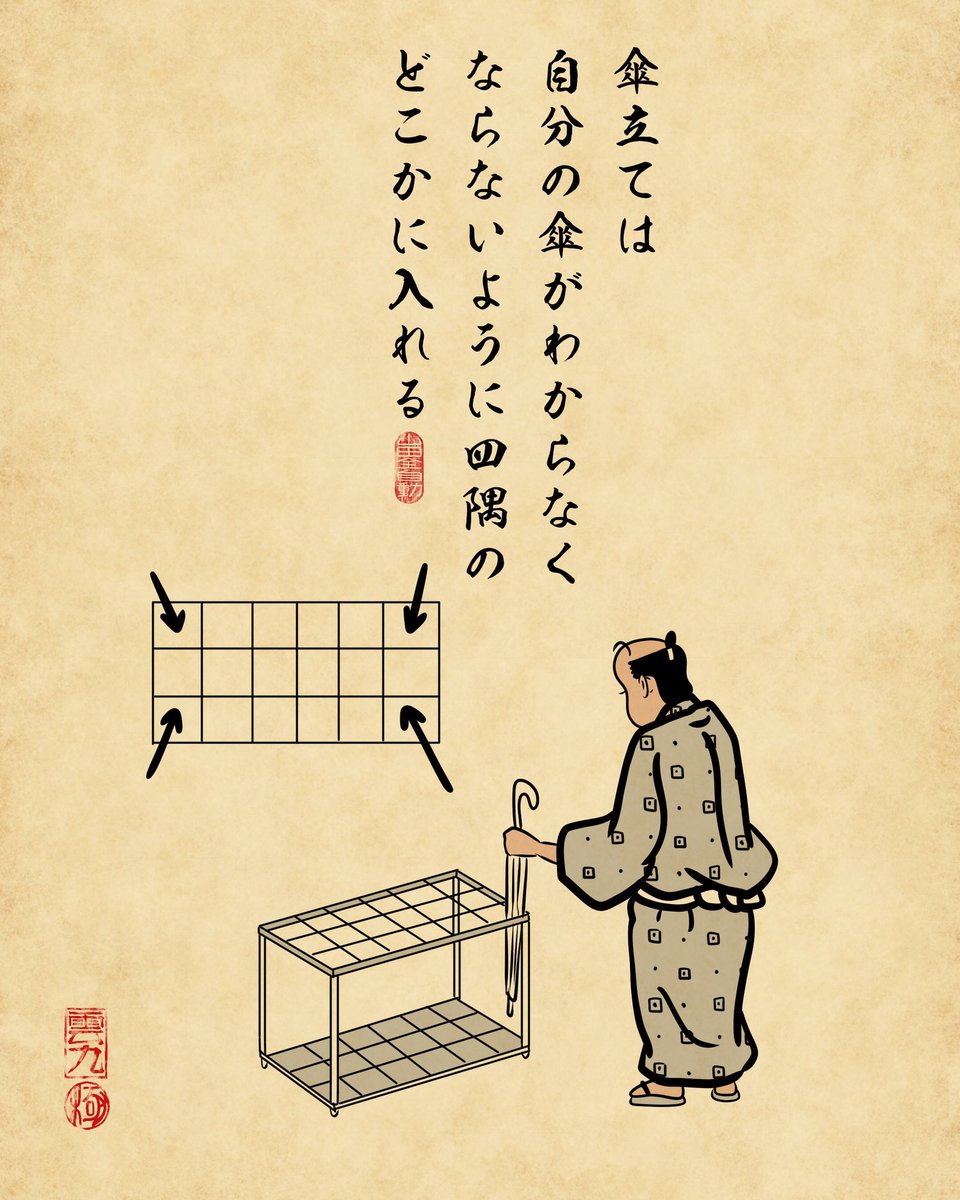 傘立ては
自分の傘がわからなく
ならないように四隅の
どこかに入れる